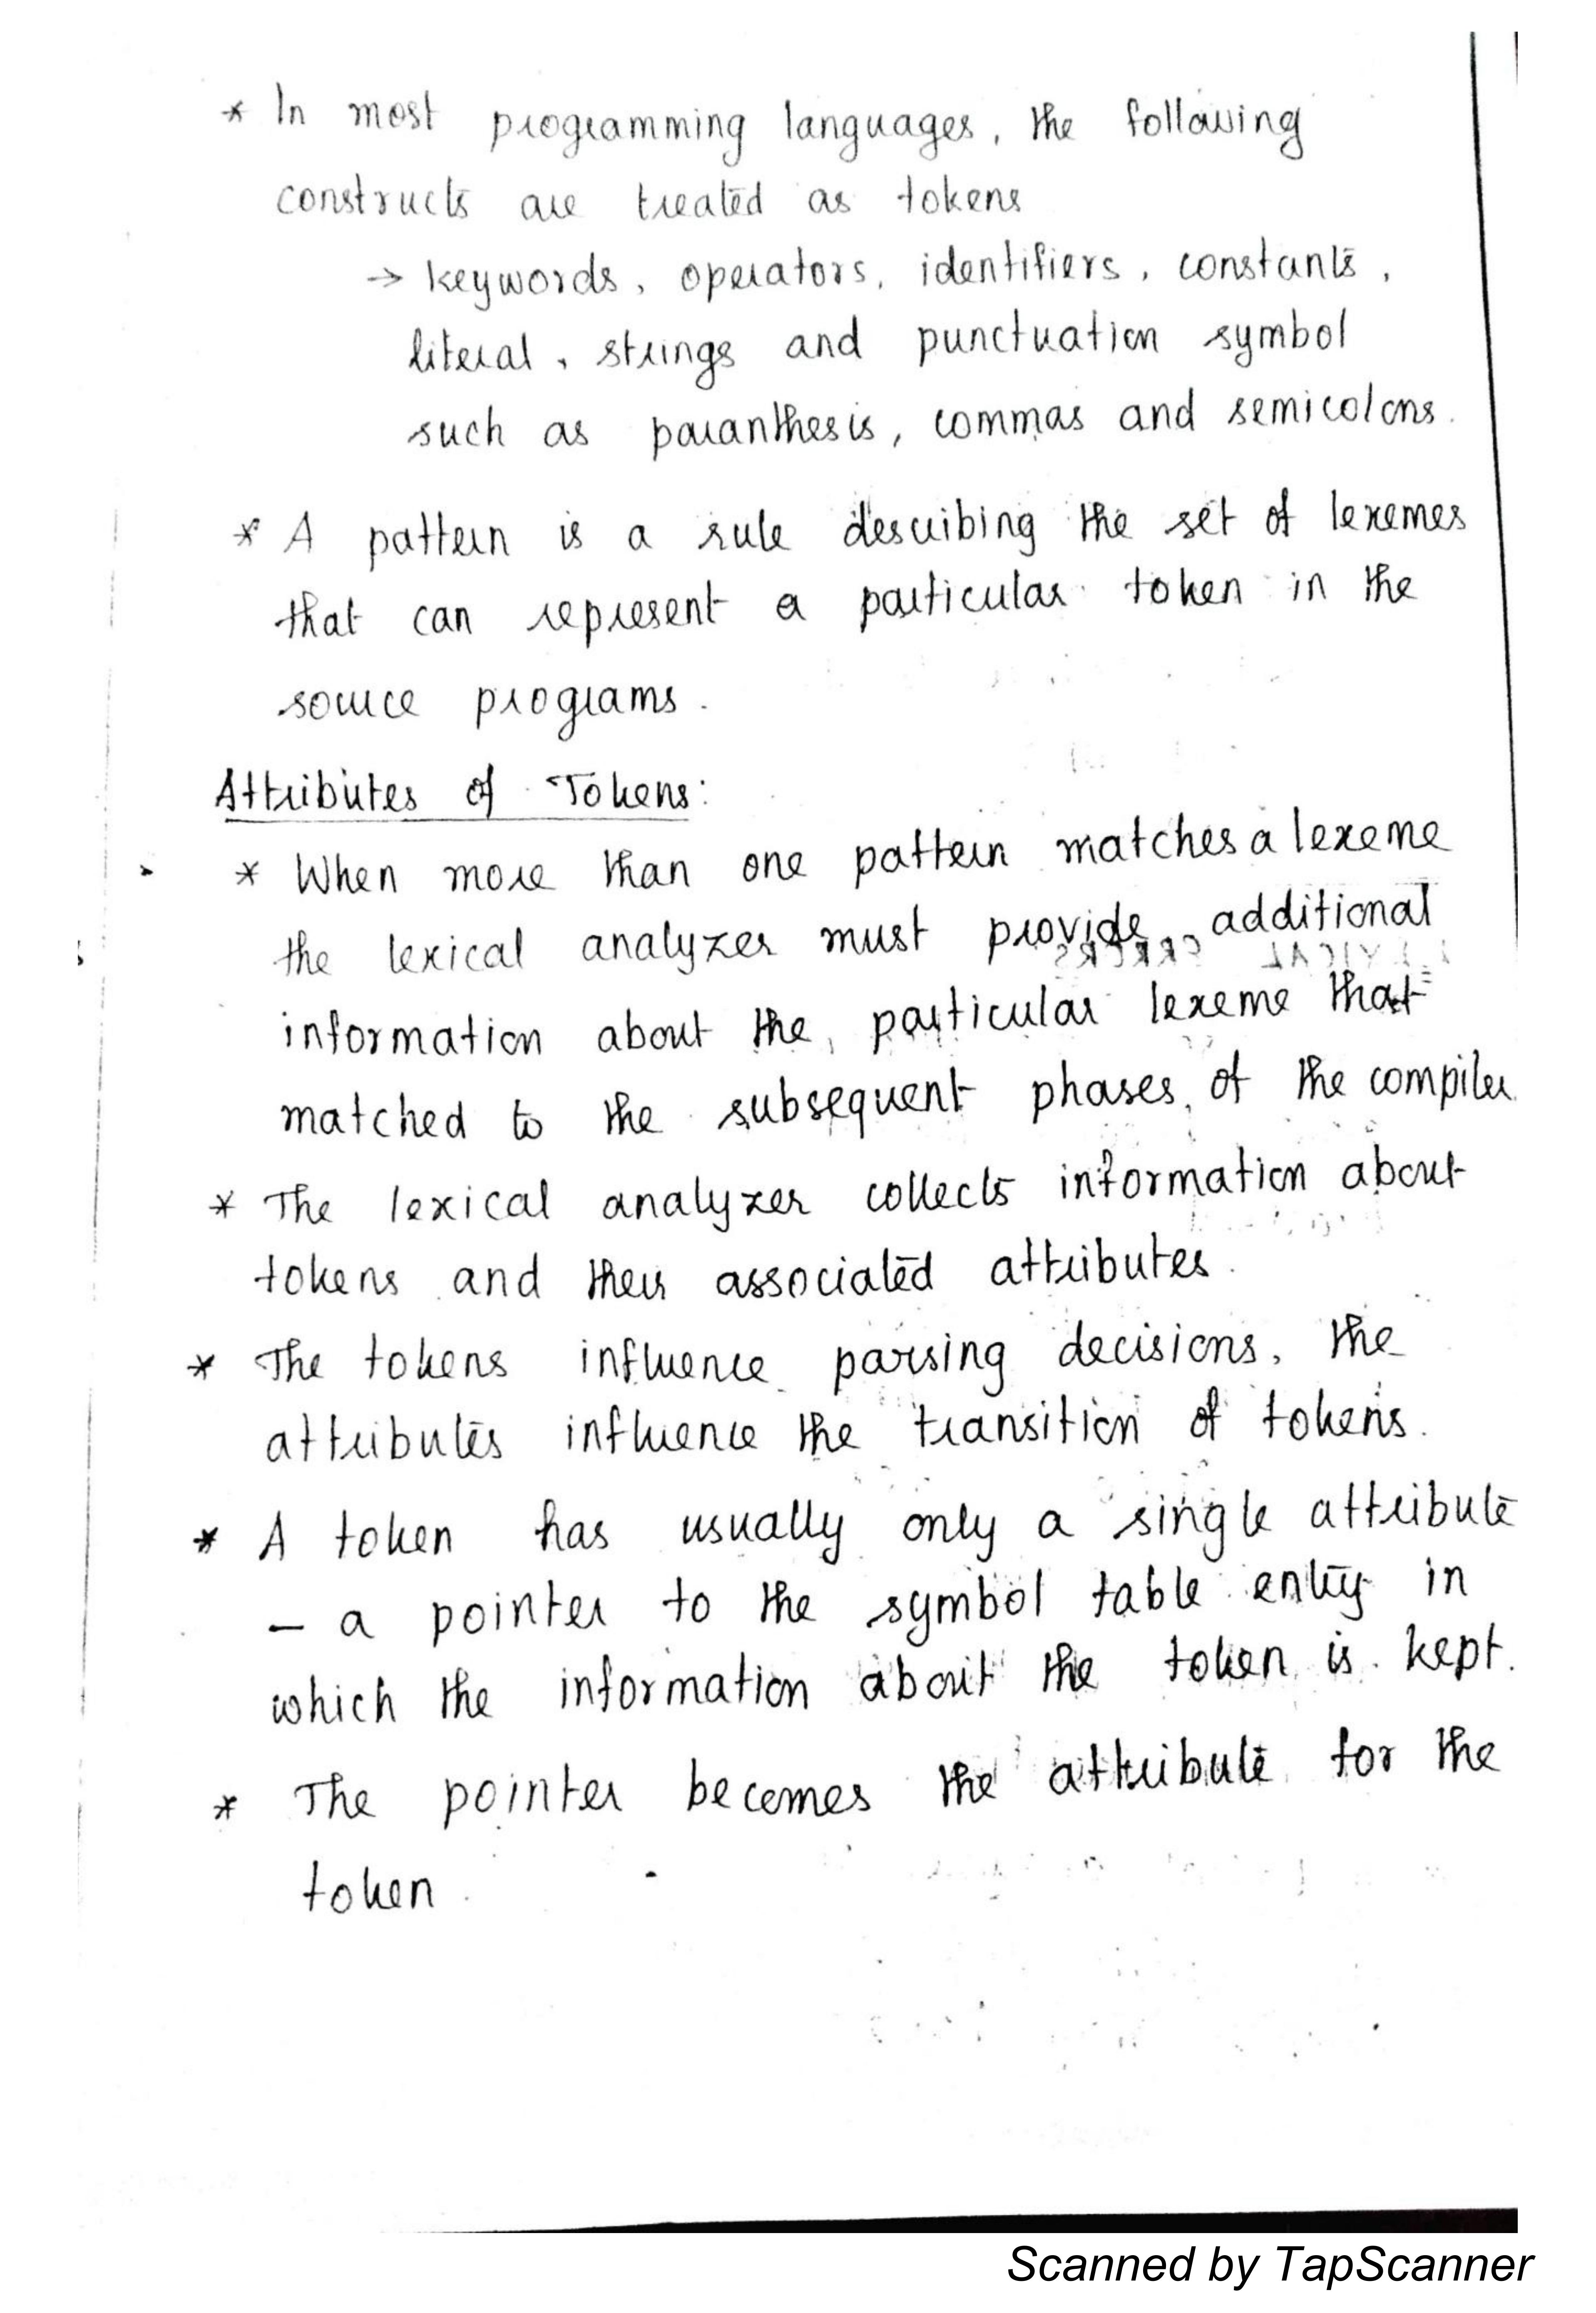 * In most programming languages, the following
constructs are treated as tokens
→ keywords, operators, identifiers, constants,
literal, strings and punctuation symbol
such as paranthesis, commas and semicolons.
* A pattern is a rule describing the set of lexemes
that can represent a particular token in the
source programs.
Attributes of Tokens:
* When more than one pattern matches a lexeme
the lexical analyzer must provide additional
information about the particular lexeme that
matched to the subsequent phases of the compiler
* The lexical analyzer collects information about
tokens and their associated attributes.
* The tokens influence parsing decisions, the
attributes influence the transition of tokens.
* A token has usually only a single attribute
– a pointer to the symbol table entry in
which the information about the token is kept.
* The pointer becomes the attribute for the
token.
Scanned by TapScanner